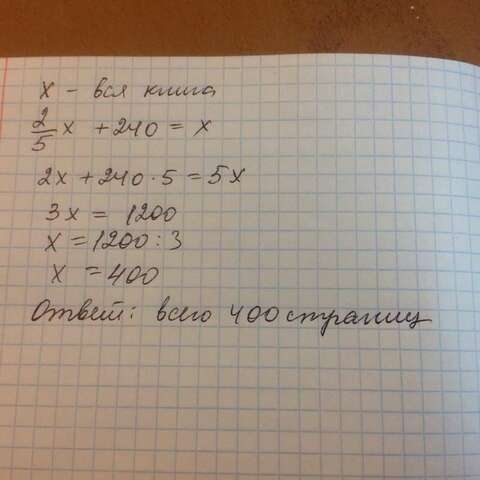 x - вся книга
2/5 x + 240 = x
2x + 240 · 5 = 5x
3x = 1200
x = 1200 : 3
x = 400
Ответ: всего 400 страниц